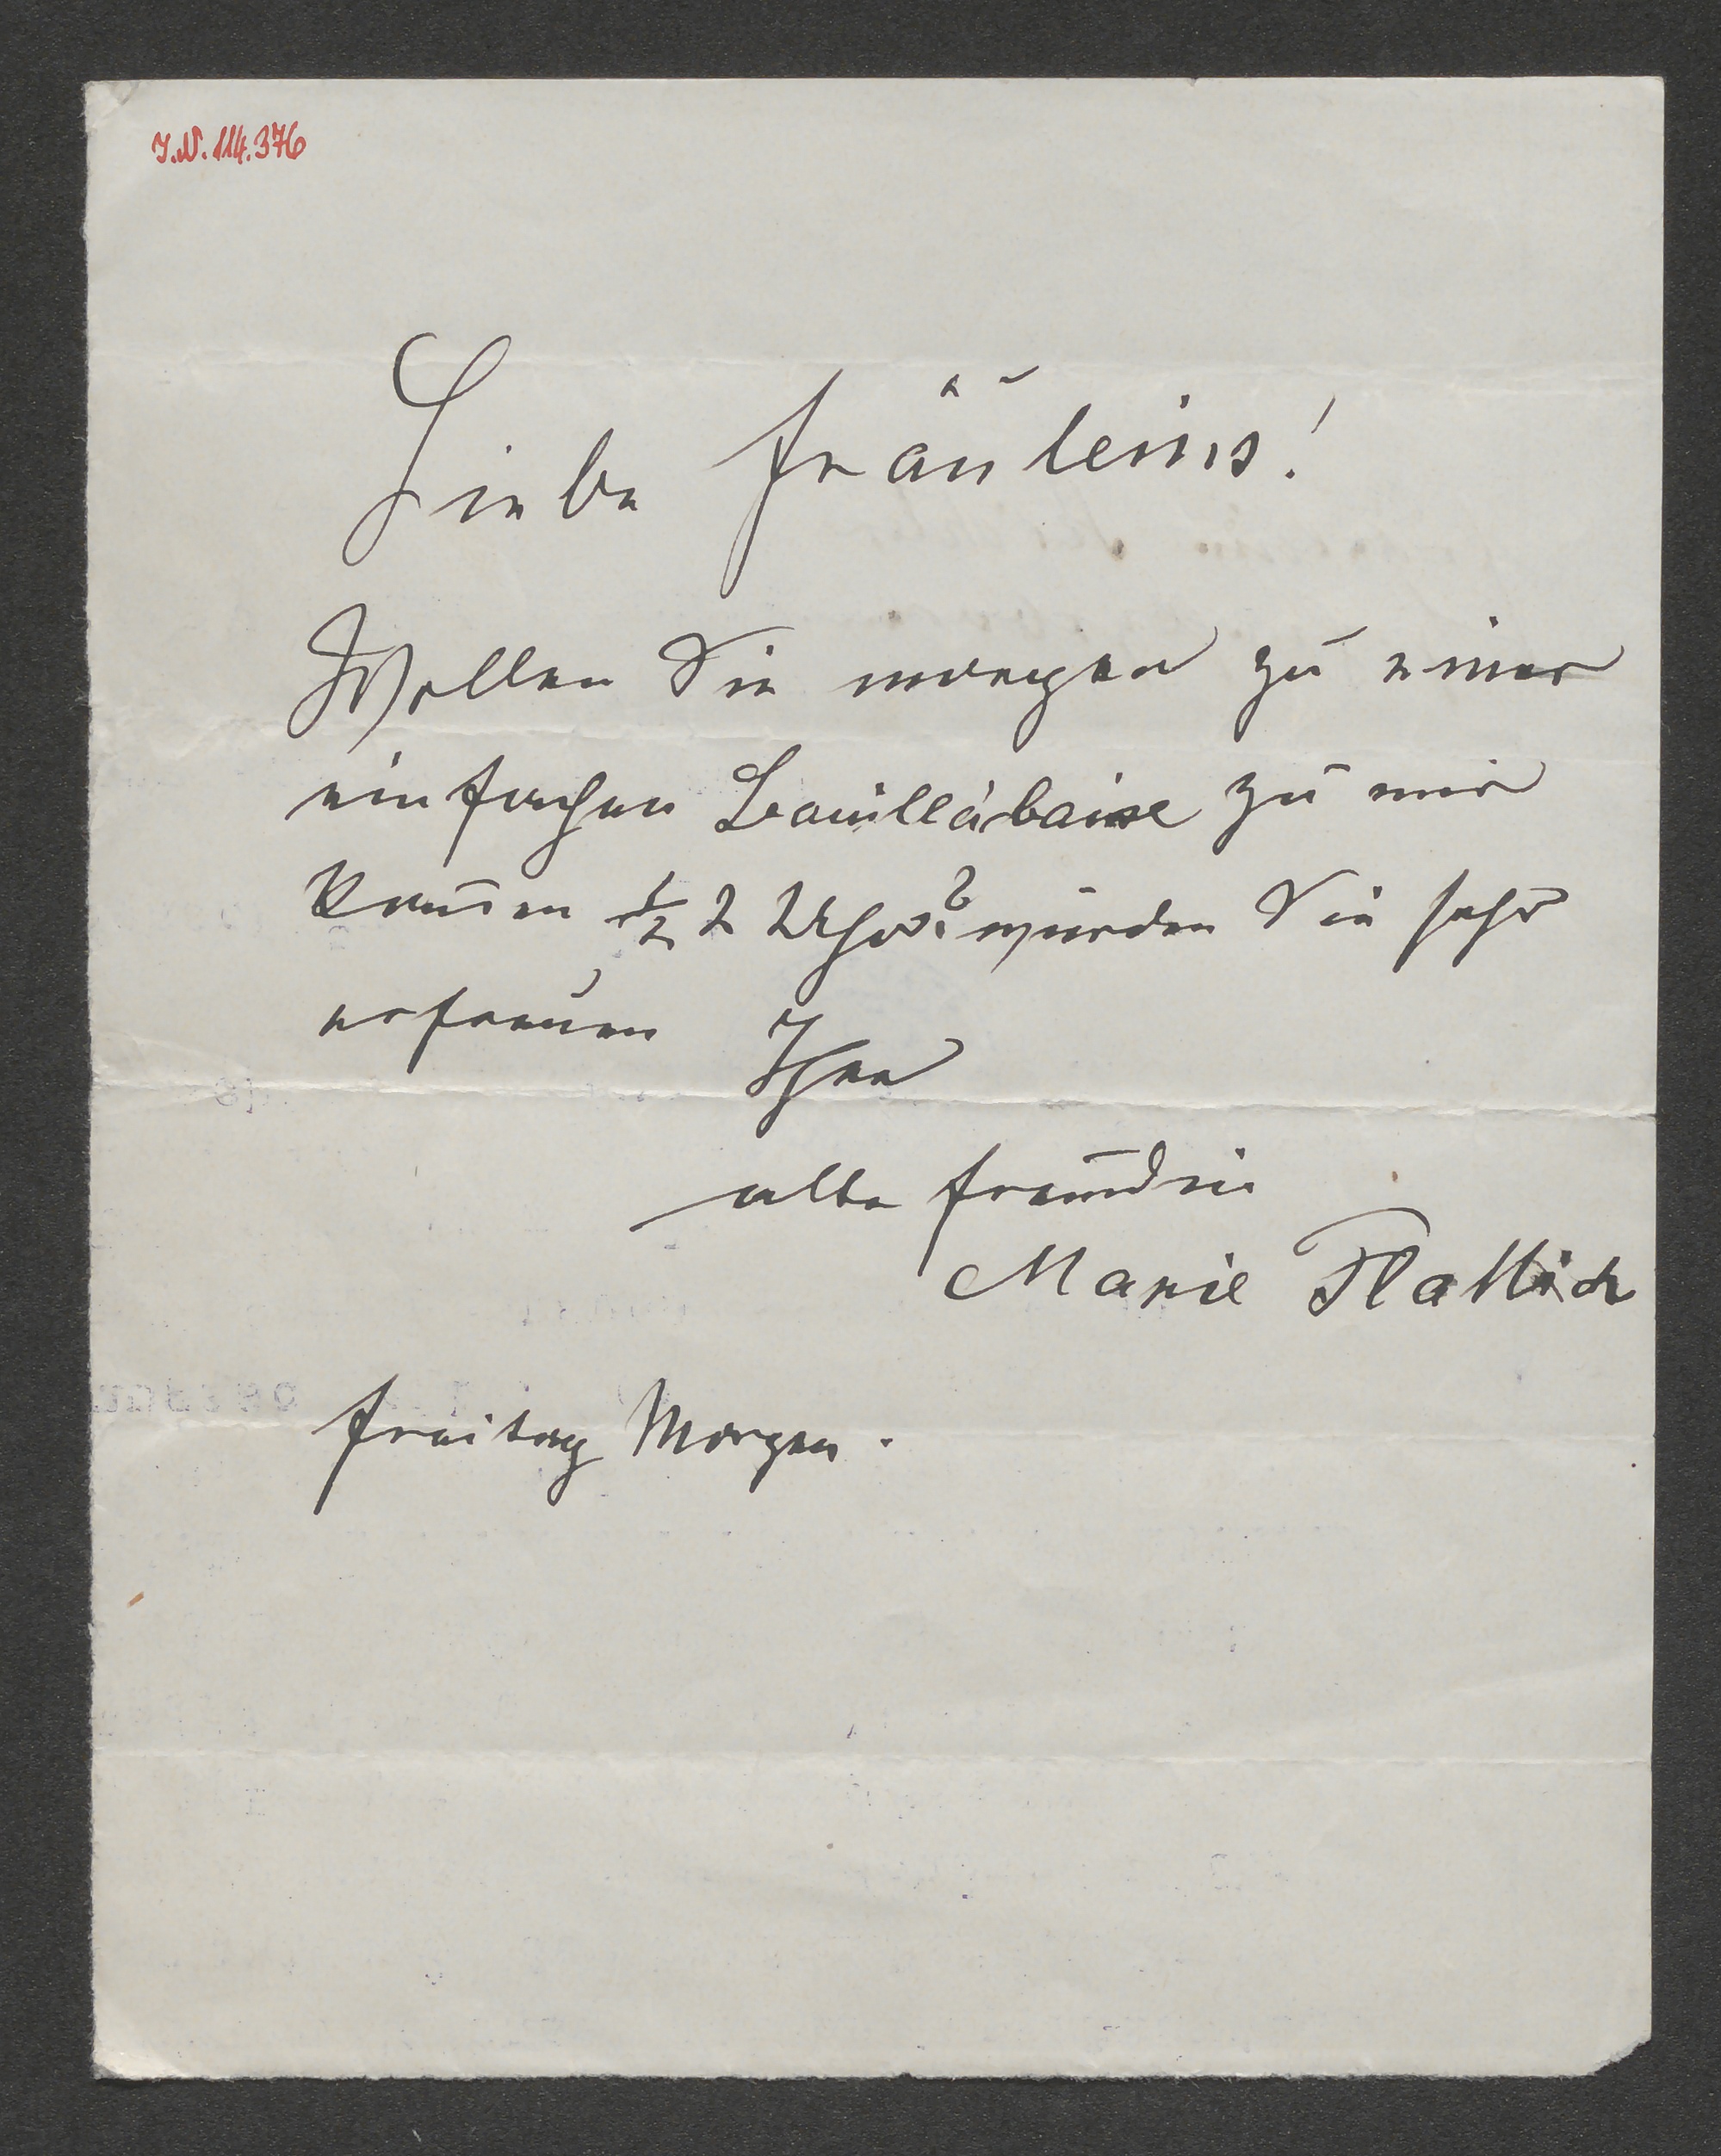 I.N. 114.376
Liebe Fräuleins!
Wollen Sie morgen zu einer
einfachen Bouillabaise zu mir
kom̄en ½ 2 Uhr? würden Sie sehr
erfreuen Ihre
alte Freundin
Marie
Freitag Morgen.